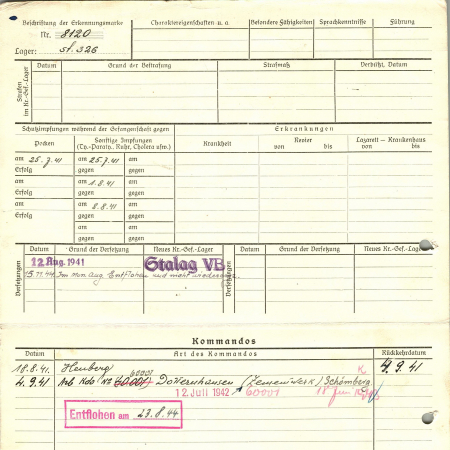 Beschriftung der Erkennungsmarke
Nr. 8120
Lager: St. 326
Charaktereigenschaften u. a.
Besondere Fähigkeiten
Sprachkenntnisse
Führung
Strafen im Kr.-Gef.-Lager
Datum
Grund der Bestrafung
Strafmaß
Verbüßt, Datum
Schutzimpfungen während der Gefangenschaft gegen
Erkrankungen
Pocken
Sonstige Impfungen
(Ty.-Paraty., Ruhr, Cholera usw.)
Krankheit
Revier
von bis
Lazarett – Krankenhaus
von bis
am 25.7.41 am 25.7.41 am
Erfolg gegen gegen
am am 1.8.41 am
Erfolg gegen gegen
am am 8.8.41 am
Erfolg gegen gegen
am am am
Erfolg gegen gegen
Versetzungen
Datum
Grund der Versetzung
Neues Kr.-Gef.-Lager
Versetzungen
Datum
Grund der Versetzung
Neues Kr.-Gef.-Lager
12 Aug. 1941
Stalag VB
15.11.44 Im Aug. Entflohen und nicht
Kommandos
Datum
Art des Kommandos
Rückkehrdatum
18.8.41. Heuberg 4.9.41
60001
4.9.41 Arb Kdo No Dotternhausen (Zementwerk) Schömberg
12. Juli 1942 60001 18 Jun
Entflohen am 23.8.44